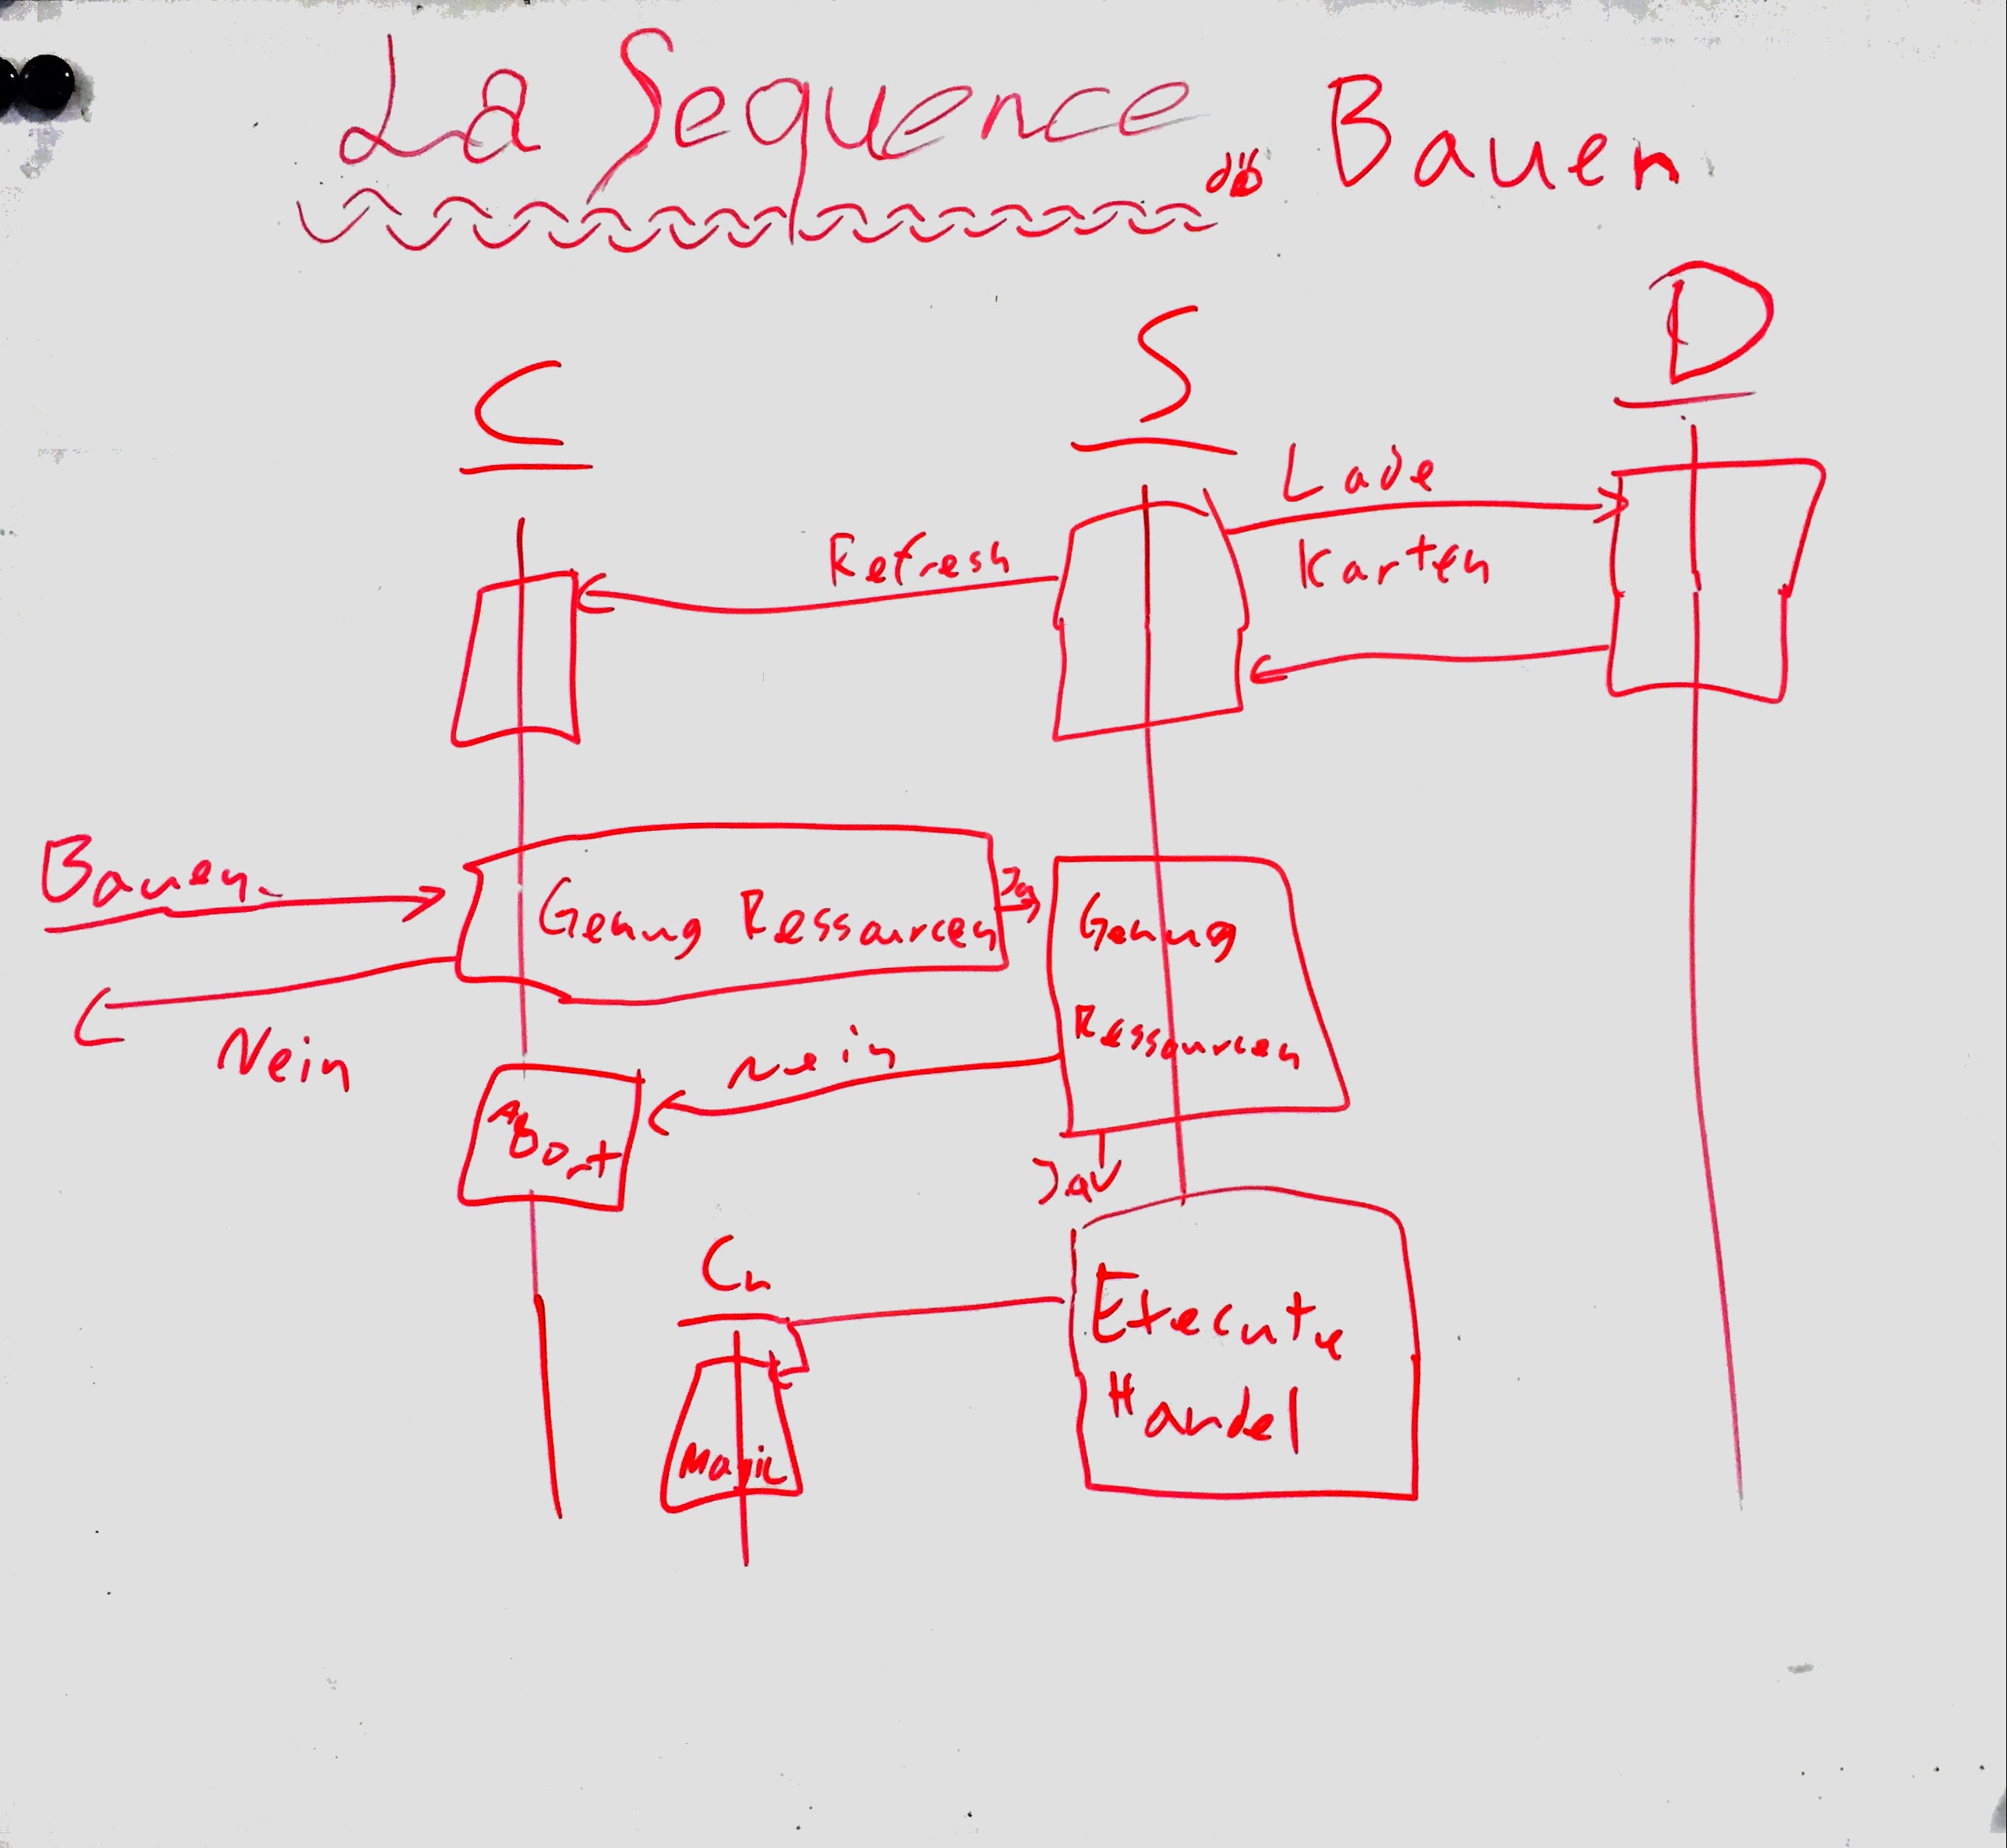 La Sequence
Bauen
C
S
D
Lade
Karten
Refresh
Bauen
Genug Ressourcen
Ja
Genug
Ressourcen
Nein
Nein
ABort
Ja
Cn
Execute
Handel
Magic